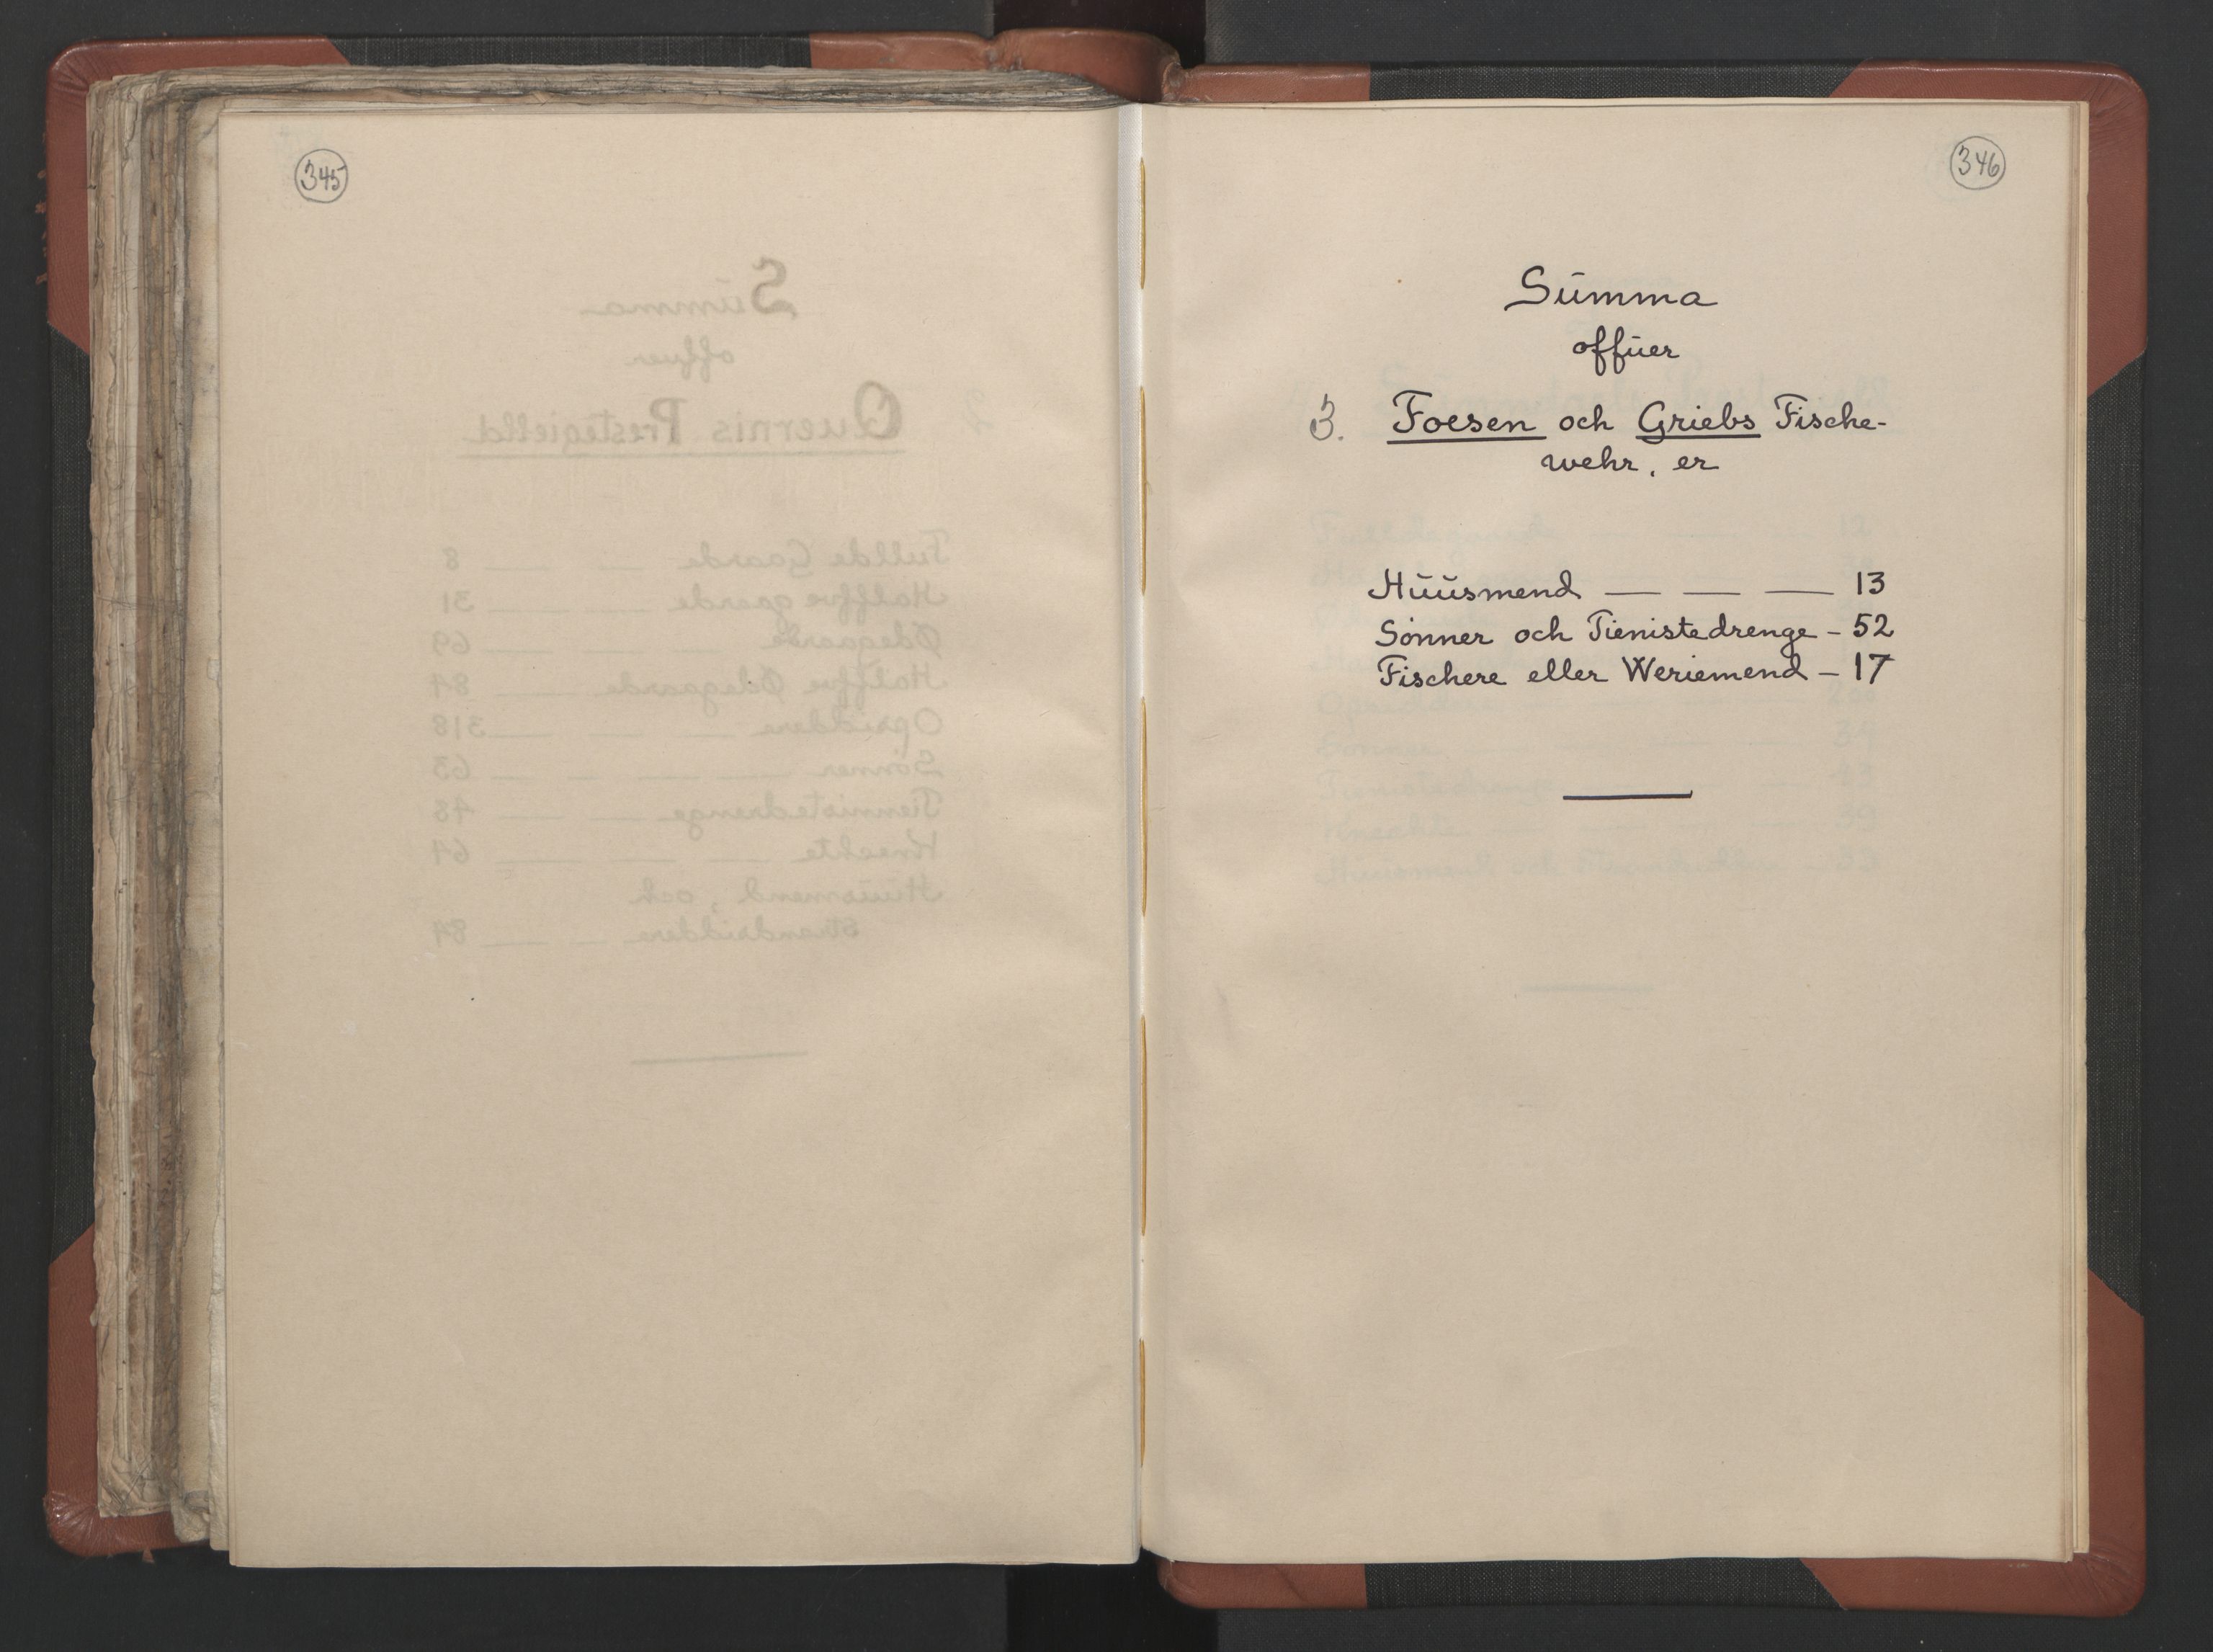 345
346
Sümma
offüer
3. Foesen och Griebs Fische-
wehr, er
Hüüsmend — — — 13
Sönner och Tienistedrenge - 52
Fischere eller Weriemend - 17